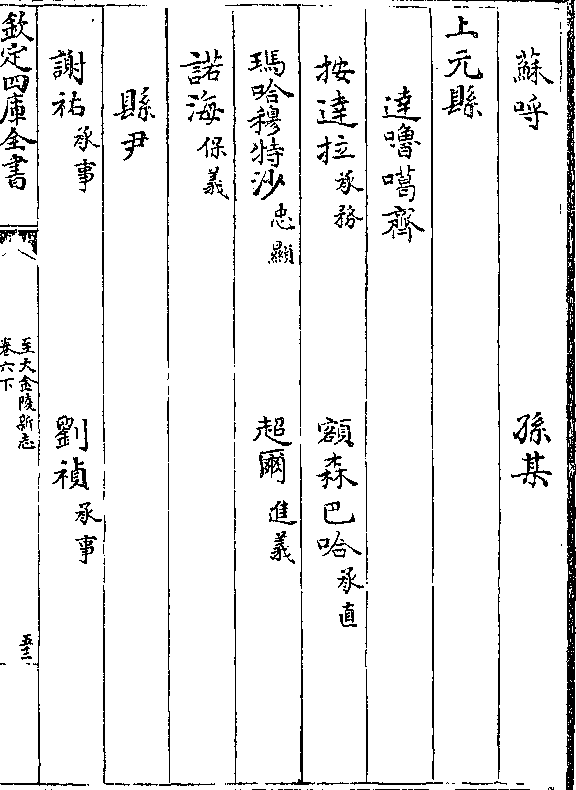 蘇呼　孫某
上元縣
達嚕噶齊
按達拉承務　額森巴哈承直
瑪哈穆特沙忠顯　超爾進義
諾海保義
縣尹
謝祐承事　劉禎承事
欽定四庫全書
至大金陵新志
卷六下